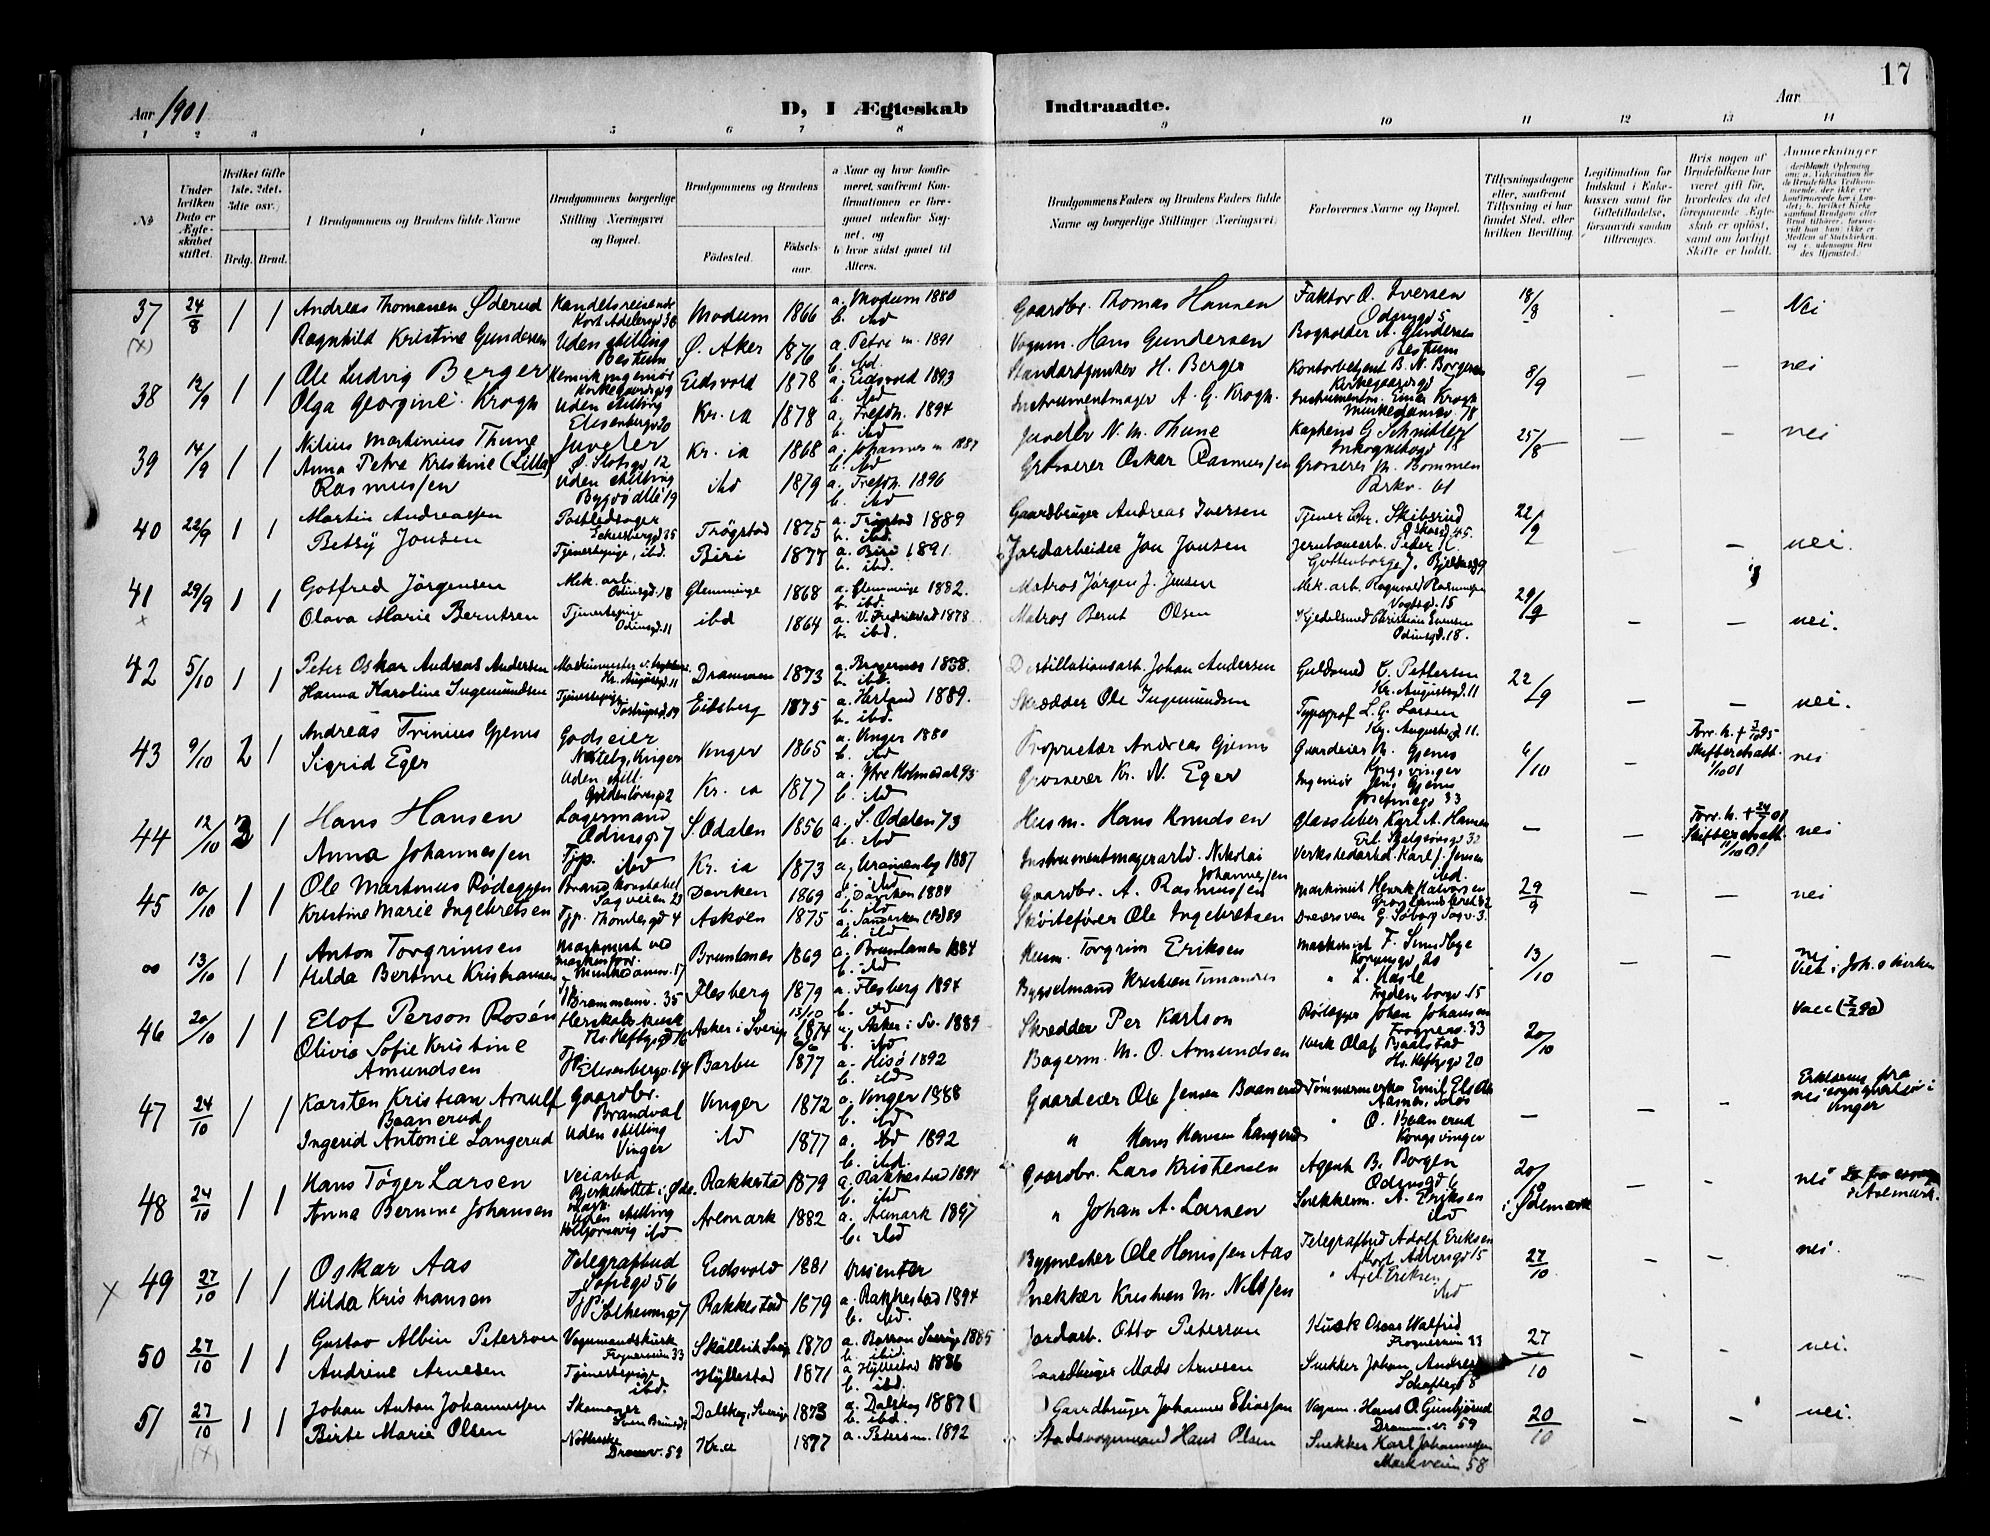 17
Aar 1901
D, I Ægteskab Indtraadte.
Aar
1 2 3 4 5 6 7 8 9 10 11 12 13 14
No
Under hvilken Dato er Ægteskabet stiftet.
Hvilket Gifte 1ste, 2det, 3die osv.
Brdg. Brud.
Brudgommens og Brudens fulde Navne
Brudgommens borgerlige Stilling (Næringsvei) og Bopæl.
Brudgommens og Brudens
Fødested. Fødselsaar.
a. Naar og hvor konfirmeret, saafremt Konfirmationen er foregaaet udenfor Sognet, og
b. hvor sidst gaaet til Alters.
Brudgommens Faders og Brudens Faders fulde Navne og borgerlige Stillinger (Næringsvei)
Forlovernes Navne og Bopæl.
Tillysningsdagene eller, saafremt Tillysning ei har fundet Sted, efter hvilken Bevilling.
Legitimation for Indskud i Enkekassen samt for Giftetilladelse, forsaavidt saadan tiltrænges.
Hvis nogen af Brudefolkene har været gift før, hvorledes da det foregaaende Ægteskab er opløst, samt om lovligt Skifte er holdt.
Anmerkninger
37 24/8 1 1 Andreas Thomassen Øderud Handelsreisende Kort Adelersgd 38 Modum 1866 a. Modum 1880 b. ibd Gaardbr. Thomas Hansen Faktor O. Iversen Odinsgd 5 18/8 — Nei
(x) Ragnhild Kristine Gundersen Uden stilling Bestum Ø. Aker 1876 a. Petri m. 1891 b. ibd. Vognm. Hans Gundersen Bogholder A. Gundersen Bestum
38 12/9 1 1 Ole Ludvig Berger Eidsvold 1878 a. Eidsvold 1893 b. ibd H. Berger Kontorbetjent B. N. Borgersen Kirkegaardsgd 8/9 — — nei
Olga Georgine Krogh Uden stilling Elisenbergv 20 Kr. ia 1878 a. Frefdk. 1894 b. ibd Instrumentmager A. G. Krogh. Instrumentm. Einar Krogh Munkedamsv 78
39 14/9 1 1 Nilius Martinius Thune Juveler Ø. Slotsgd 12 Kr. ia 1868 a. Johannes m 1887 b. ibd Juveler N. M. Thune Kaptein G. Schnitler Inkognitogd 18 25/8 — — nei
Anna Petre Kristine (Lilla) Rasmussen Uden stilling Bygdø Allé 19 ibd 1879 a. Frefdk. 1896 b. ibd Grosserer Oskar Rasmussen Grosserer M. Bommen Parkv. 61
40 22/9 1 1 Martin Andreassen Postledsager Eckersbergd 35 Trögstad 1875 a. Trögstad 1889 b. ibd. Gaardbruger Andreas Iversen Tjener Chr. Skibsrud Oskarsgd 45. 22/9 — — nei.
Betsy Jonsen Tjenestepige, ibd. Biri 1877 a. Biri 1891. b. ibd. Jordarbeider Jon Jonsen Jernbanearb. Peder
41 29/9 1 1 Gotfred Jörgensen Mek. arb. Odinsgd. 18 Glemminge 1868 a. Glemminge 1882. b. ibd. Matros Jörgen J. Jensen Mek. arb. Ragnvald Rasmussen Vogtsgd. 15 29/9 — — nei.
x Olava Marie Berntsen Tjenestepige Odinsgd. 11 ibd 1864 a. V. Fredrikstad 1878 b. ibd. Matros Bernt Olsen Kjedelsmed Christian Evensen Odinsgd. 18.
42 5/10 1 1 Peter Oskar Andreas Andersen Kr. Augustsgd. 11 Drammen 1873 a. Bragernes 1888. b. ibd. Destillationsarb. Johan Andersen Guldsmed C. Pettersen Kr. Augustsgd. 11 22/9 — — nei.
Hanna Karoline Ingemundsen Tjenestepige Eidsberg 1875 a. Herland 1889. b. ibd. Skrædder Ole Ingemundsen Typograf L. G. Larsen Kr. Augustsgd. 11.
43 9/10 2 1 Andreas Trinius Gjems Godseier Nøsteby, Vinger Vinger 1865 a. Vinger 1880 b. ibd Proprietær Andreas Gjems Gaardeier M. Gjems Kongsvinger 6/10 — Forr. h. + 7/10 95 Skifteretsatt. 1/10 01 nei
Sigrid Eger Uden still. Gyldenløvesgd 2 Kr. ia 1877 a. Ytre Holmedal 95 b. ibd Grosserer Kr. N. Eger Ingeniør Jens Gjems Josefinegd 33
44 12/10 3 1 Hans Hansen Lagermand Odinsgd 7 S. Odalen 1856 a. S. Odalen 73 b. ibd Husm. Hans Knudsen Glassliber Karl A. Hansen 32 — — Forr. h. + 24/7 01 Skifteretsatt. 11/10 01 nei
Anna Johannessen Tjp. ibd Kr. ia 1873 a. Uranienbg 1887 b. ibd Instrumentmagerarbd. Nikolai Johannessen Verkstedarbd. Karl J. Jensen ibd.
45 10/10 1 1 Ole Martinius Rödeggen Brandkonstabel Sagveien 23 1869 a. 1884 b. ibd Gaardbr. A. Rasmussen Maskinist Henrik Halvorsen 29/9 — — nei
Kristine Marie Ingebretsen Tjp. Thomlesgd 4 Askøen 1875 89 b. ibd Skøitefører Ole Ingebretsen G. Søborg Sagv. 3.
00 13/10 1 1 Anton Torgrimsen Maskinist ved Munkedamsv. 17 Brunlanes 1869 a. Brunlanes 1884 b. ibd Husm. Torgrim Eriksen Maskinist F. Sundbye 20 13/10 — — nei
Hilda Bertine Kristiansen Tjp. Drammensv. 35 Flesberg 1879 a. Flesberg 1894 b. ibd Bygselmand Kristian Timandes " L. Hasle Fredensborgv. 15 Viet i Joh.s kirken
46 20/10 1 1 Elof Person Rosén Herskabskusk Ths. Heftyesgd 16 Asker i Sverig 13/10 1874 a. Asker i Sv. 1889 b. ibd Skredder Per Karlson Rørlegger Johan Johansen Frognerv. 33 20/10 Vacc
Olivia Sofie Kristine Amundsen Tjp. Elisenbergv. 19 Barbu 6/6 1877 a. Hisö 1892 b. ibd Bagerm. M. O. Amundsen Kusk Olaf Braalstad Ths. Heftyesgd 20
47 24/10 1 1 Karsten Kristian Arnulf Baanerud Gaardbr. Brandval Vinger 1872 a. Vinger 1888 b. ibd Gaardeier Ole Jensen Baanerud Tømmermerker Emil — — — nei Erklæring fra sognepresten i Vinger
Ingerid Antonie Langerud Uden stilling Vinger ibd 1877 a. ibd 1892 b. ibd. " Hans Hansen Langerud " O. Baanerud Kongsvinger
48 24/10 1 1 Hans Töger Larsen Veiarbed Rakkestad 1879 a. Rakkestad 1894 b. ibd Gaardbr. Lars Kristensen Agent B. Borgen Odinsgd 6 20/10 i Ødemark — — nei
Anna Bernine Johansen Uden stilling ibd Aremark 1882 a. Aremark 1897 b. ibd " Johan A. Larsen Snekkerm. A. Eriksen ibd i Aremark.
x 49 27/10 1 1 Oskar Aas Telegrafbud Sofiesgd 56 Eidsvold 1881 Dissenter Bygmester Ole Hansen Aas Telegrafbud Adolf Eriksen Kort Adelersgd 15 27/10 — — nei.
Hilda Kristiansen Rakkestad 1879 a. Rakkestad 1894 b. ibd. Snekker Kristian M. Nilssen " Axel Eriksen ibd
50 27/10 1 1 Gustav Albin Peterson Vognmandskusk Frognerveien 33 Skällvik Sverig 1870 a. Börrum Sverige 1885 b. ibid. Jordarb. Otto Peterson Kusk Oscar Walfrid Frognerveien 33 27/10 — — nei.
Andrine Arnesen Tjenestepige ibd. Hyllestad 1871 a. Hyllestad 1886 b. ibd. Gaardbruger Mads Arnesen Snekker Johan Andresen Schaftesgd 8
51 27/10 1 1 Johan Anton Johannessen Skomager Dalskog, Sverige 1873 a. Dalskog 1887 b. ibd. Gaardbruger Johannes Eliassen Vognm. Hans O. Gunbjörud Dramm.v. 59 20/10 — — nei.
(x) Birte Marie Olsen Dramv. 59 Kr.a 1877 a. Petersm. 1892 Stadsvognmand Hans Olsen Snekker Karl Johannessen Markveien 58